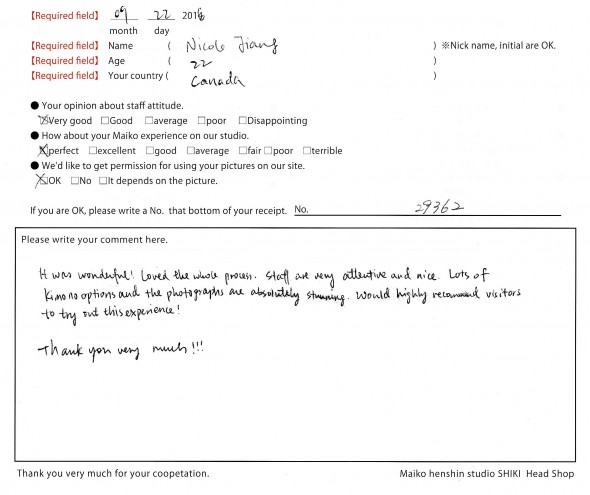 【Required field】 09 22 2016
month day
【Required field】 Name ( Nicole Jiang ) ※Nick name, initial are OK.
【Required field】 Age ( 22 )
【Required field】 Your country ( Canada )
● Your opinion about staff attitude.
☒Very good □Good □average □poor □Disappointing
● How about your Maiko experience on our studio.
☒perfect □excellent □good □average □fair □poor □terrible
● We'd like to get permission for using your pictures on our site.
☒OK □No □It depends on the picture.
If you are OK, please write a No. that bottom of your receipt. No. 29362
Please write your comment here.
It was wonderful! Loved the whole process. Staff are very attentive and nice. Lots of
kimono options and the photographs are absolutely stunning. Would highly recommend visitors
to try out this experience!
Thank you very much!!!
Thank you very much for your coopetation. Maiko henshin studio SHIKI Head Shop